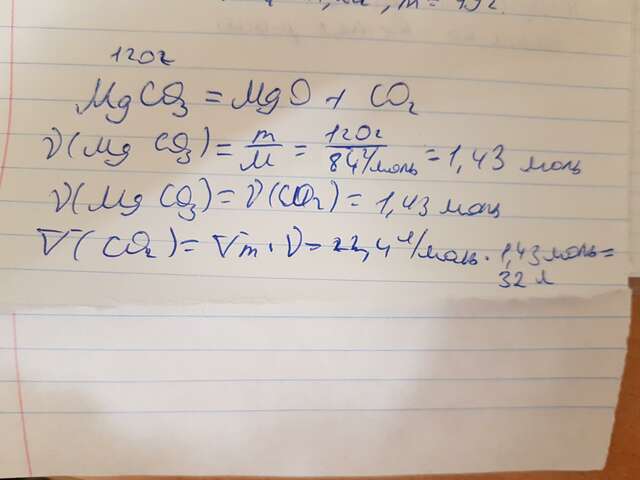 m = 
120г
MgCO₃ = MgO + CO₂
ν(MgCO₃) = m/M = 120г/84г/моль = 1,43 моль
ν(MgCO₃) = ν(CO₂) = 1,43 моль
V(CO₂) = Vm · ν = 22,4 л/моль · 1,43 моль =
32 л